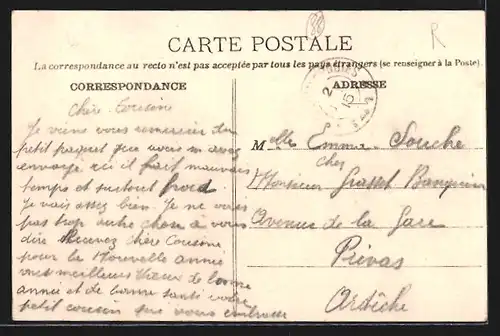 CARTE POSTALE
La correspondance au recto n'est pas acceptée par tous les pays étrangers (se renseigner à la Poste).
CORRESPONDANCE
ADRESSE
Chère Cousine
Je viens vous remercier du
petit paquet que vous m'avez
envoyé ici il fait mauvais
temps et surtout froid
Je vais assez bien. Je ne vois
pas trop autre chose à vous
dire Recevez chère Cousine
pour la Nouvelle année
mes meilleurs Vœux de bonne
année et de bonne santé votre
petit cousin qui vous embrasse
Melle Emma Souche
chez
Monsieur Grasset Banquier
Avenue de la Gare
Privas
Ardèche
R